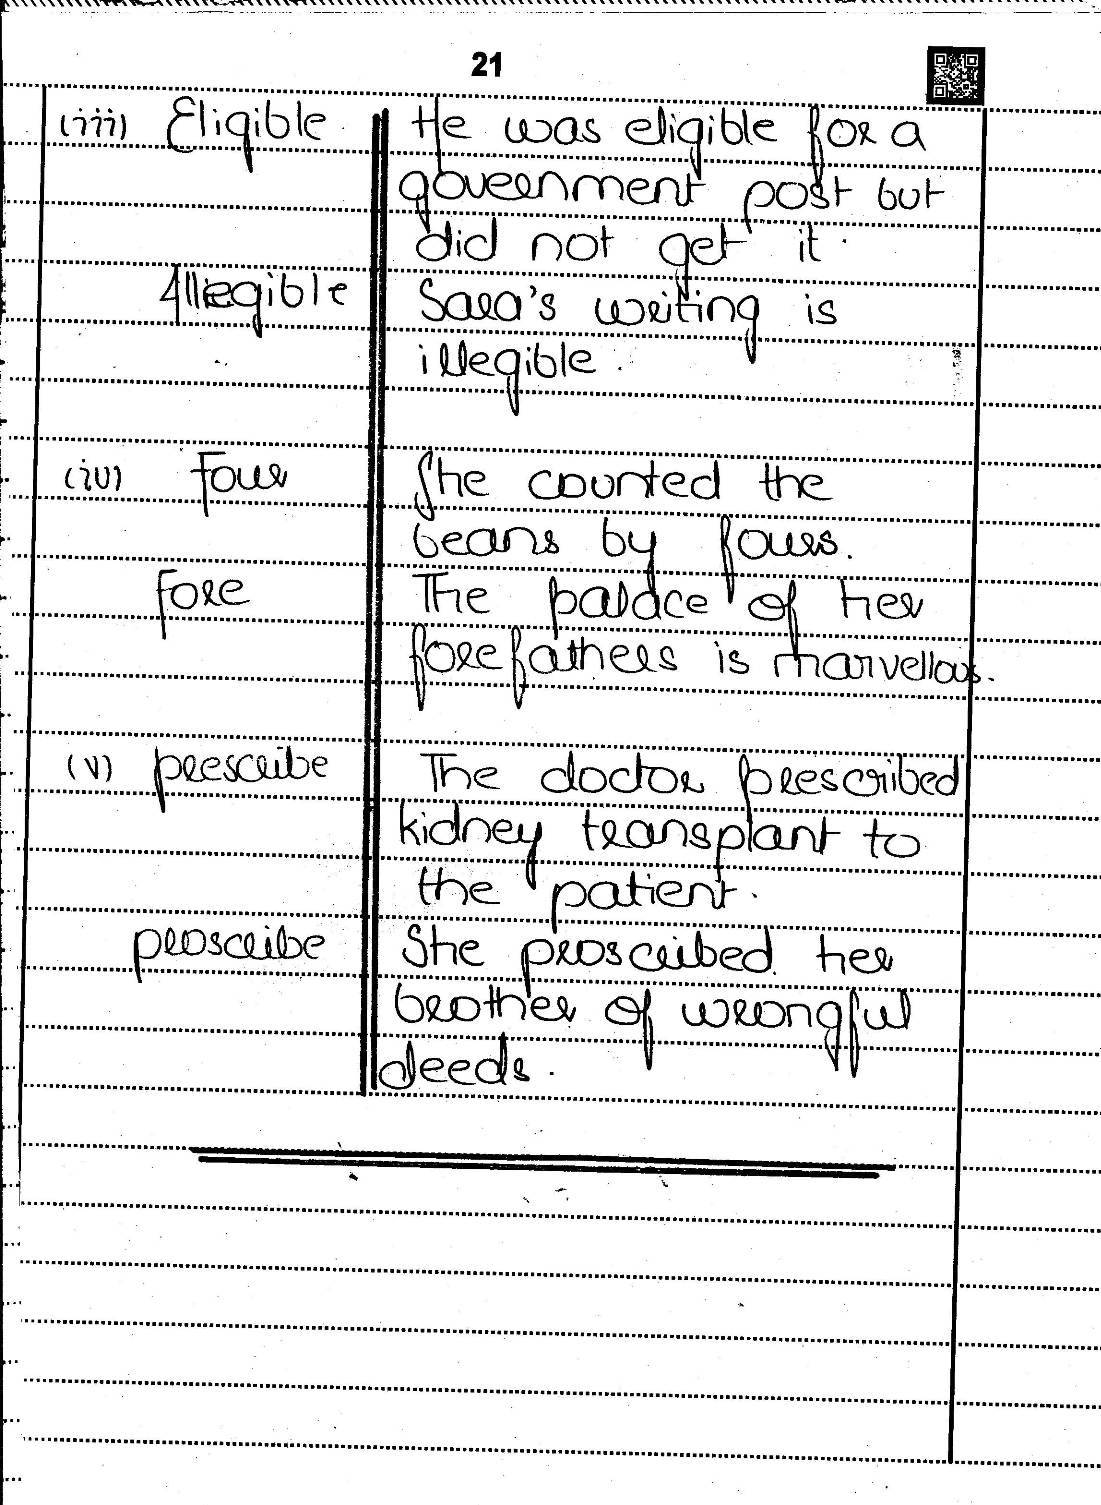 21
(iii) Eligible. He was eligible for a
government post but
did not get it.
Illegible Sara's writing is
illegible.
(iv) Four She counted the
beans by fours.
Fore The palace of her
forefathers is marvellous.
(v) prescribe The doctor prescribed
kidney transplant to
the patient.
proscribe She proscribed her
brother of wrongful
deeds.